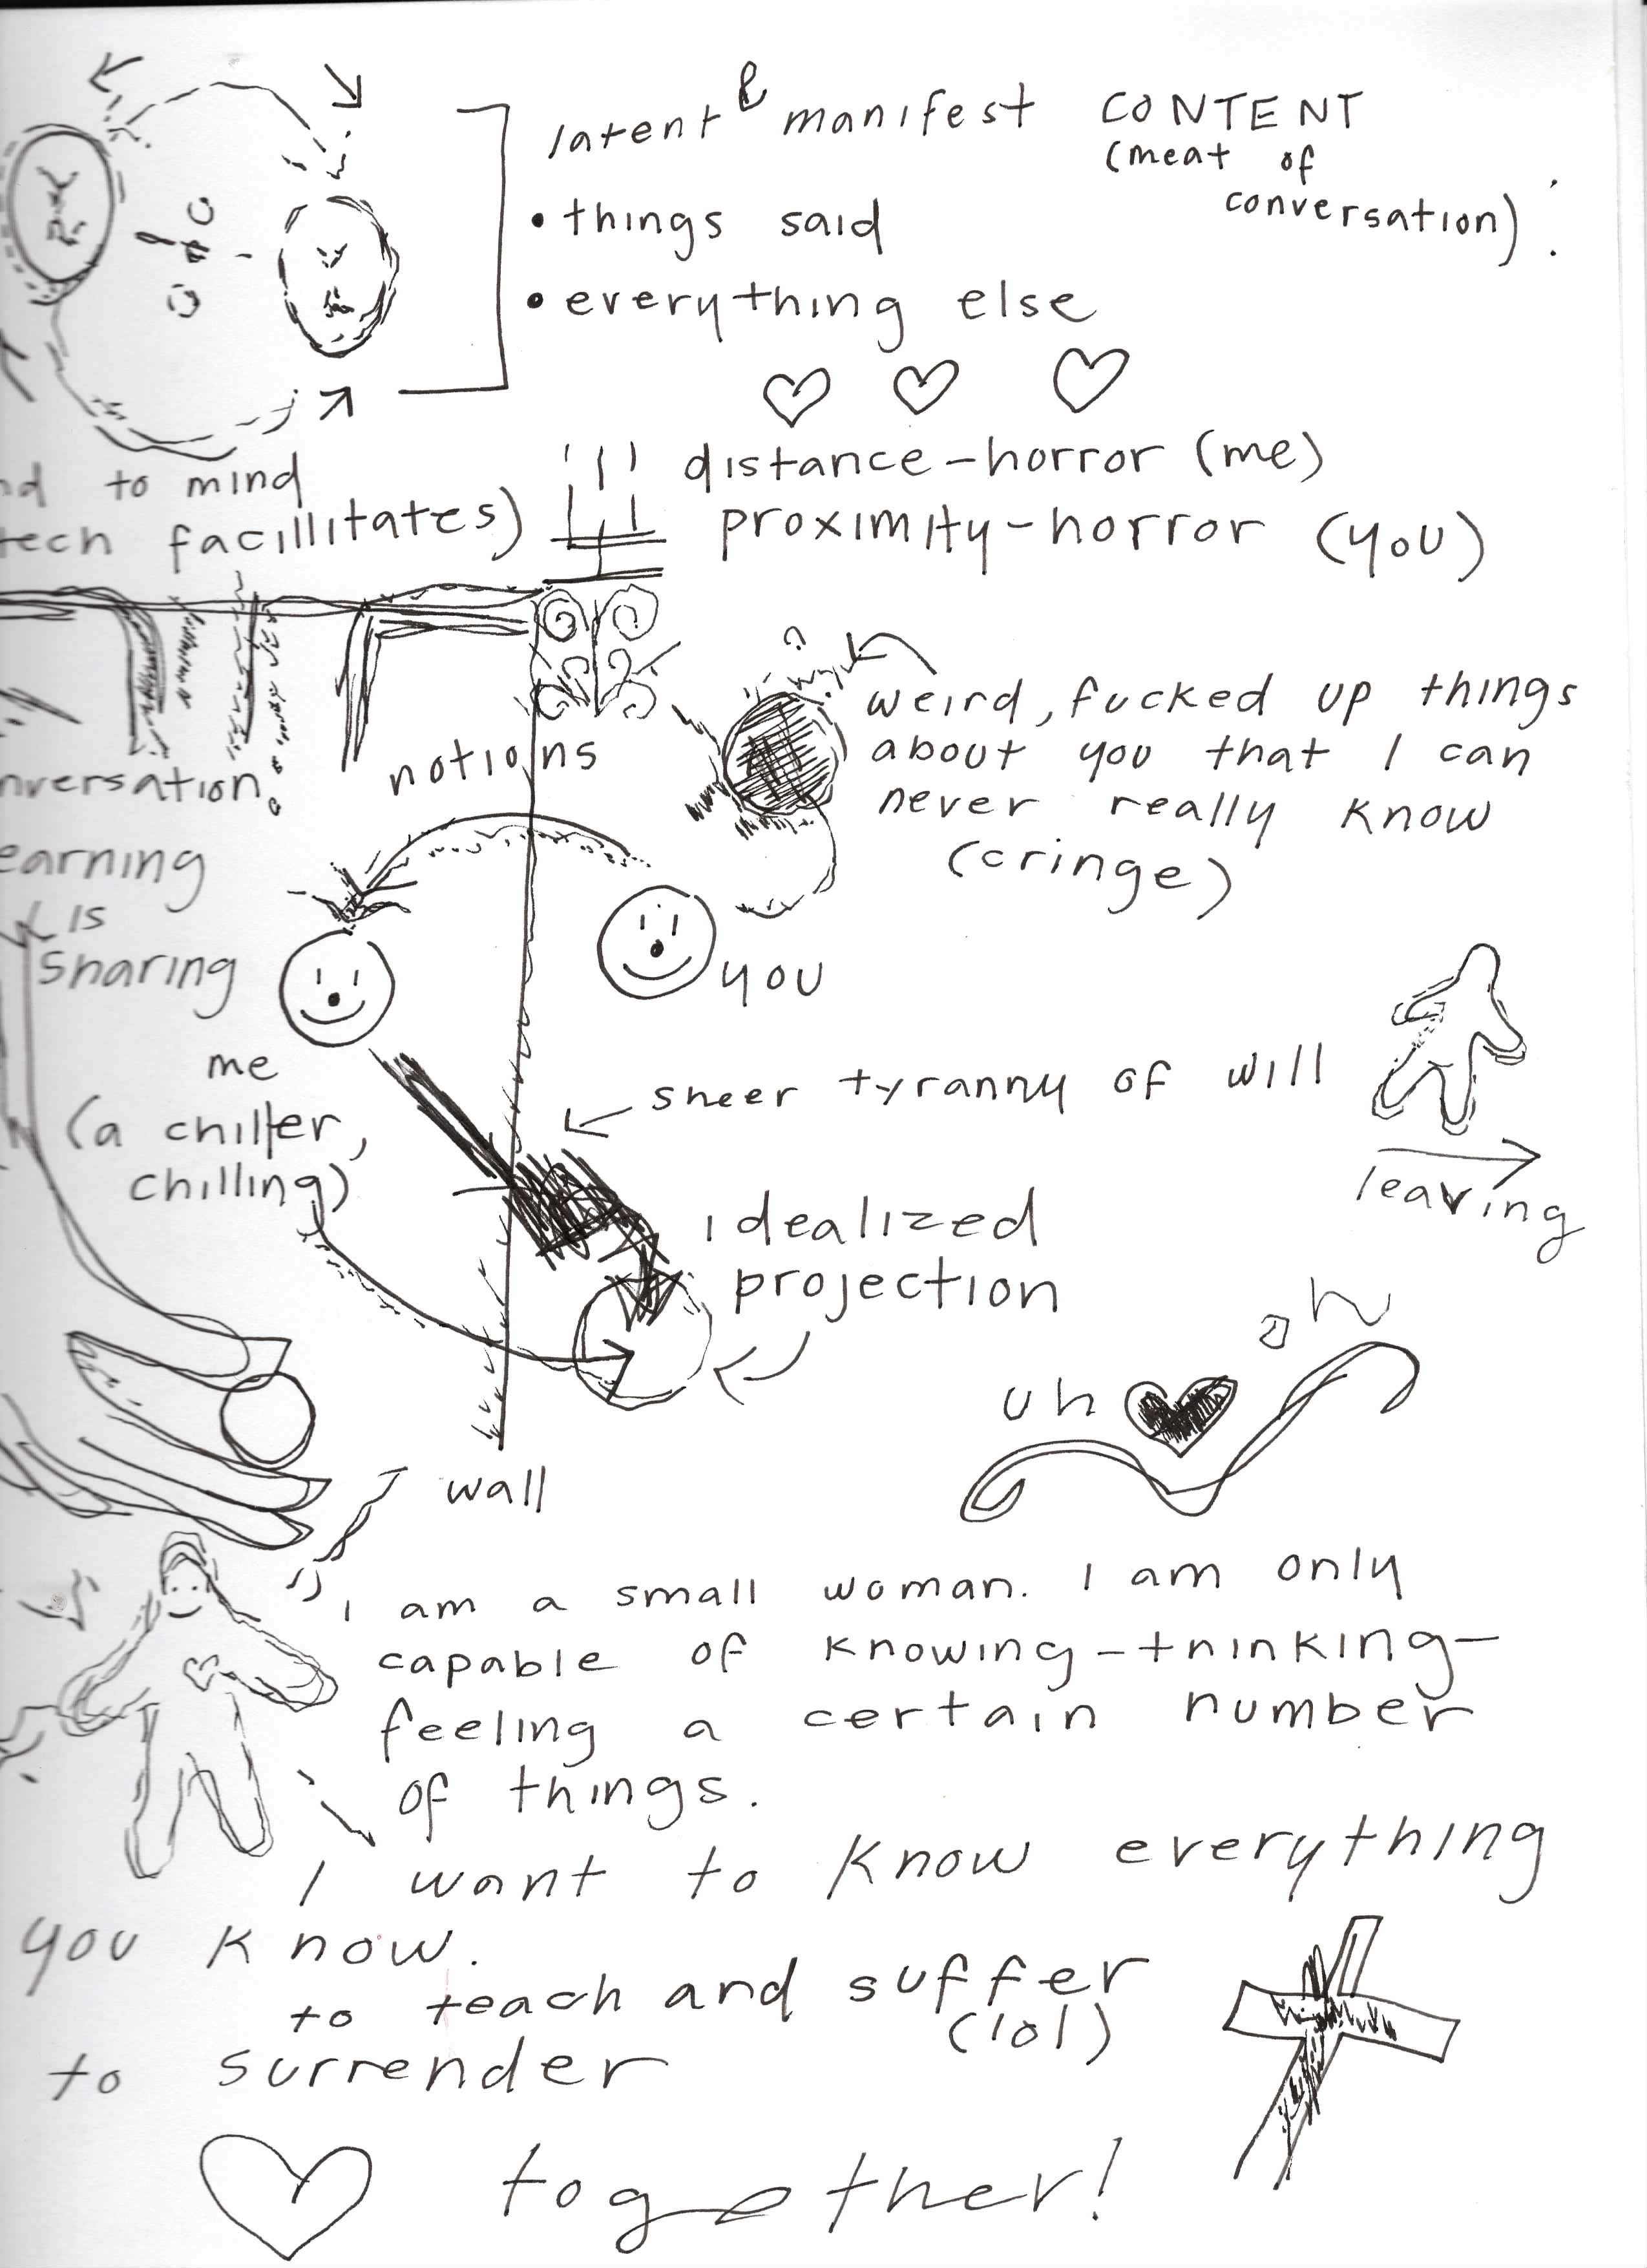 latent & manifest CONTENT
(meat of
conversation):
• things said
• everything else
distance-horror (me)
proximity-horror (you)
to mind
facillitates)
weird, fucked up things
about you that I can
never really know
(cringe)
notions
you
is
sharing
me
(a chiller,
chilling)
sheer tyranny of will
leaving
idealized
projection
uh
oh
wall
I am a small woman. I am only
capable of knowing-thinking-
feeling a certain number
of things.
I want to know everything
you know.
to teach and suffer
(lol)
to surrender
together!